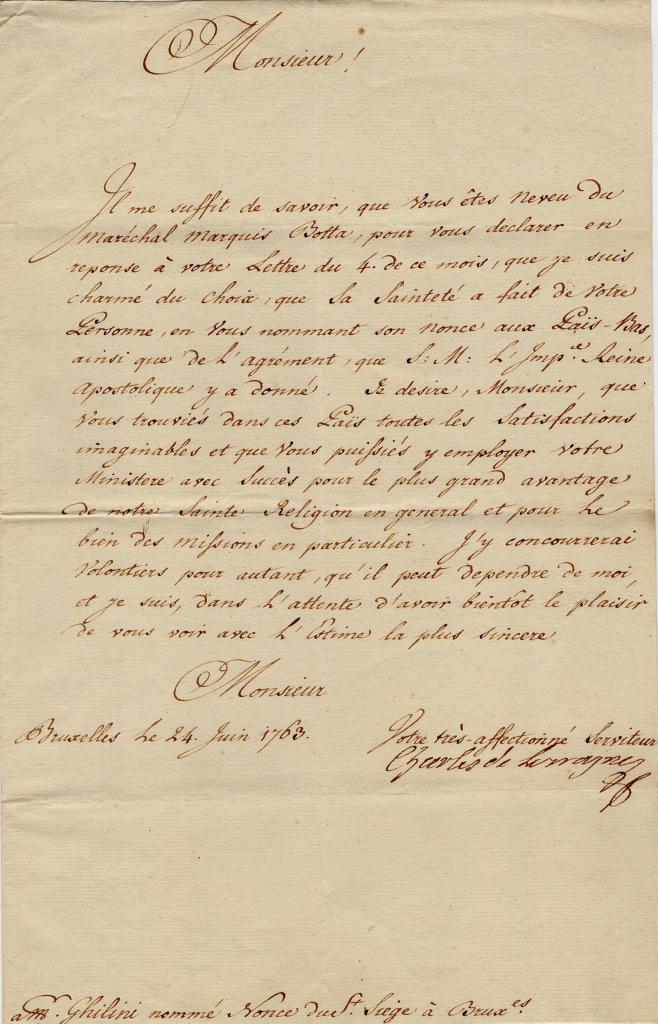 Monsieur!
Il me suffit de savoir, que Vous êtes Neveu du
Maréchal Marquis Botta, pour vous declarer en
reponse à votre Lettre du 4. de ce mois, que je suis
charmé du choix, que Sa Sainteté a fait de Votre
Personne, en Vous nommant son Nonce aux Païs-Bas,
ainsi que de l'agrément, que S: M: L'Imp.e Reine
Apostolique y a donné. Je desire, Monsieur, que
Vous trouviés dans ces Païs toutes les Satisfactions
imaginables et que Vous puissiés y employer votre
Ministere avec Succès pour le plus grand avantage
de notre Sainte Religion en general et pour le
bien des missions en particulier. J'y concourrerai
Volontiers pour autant, qu'il peut dependre de moi,
et je suis, dans l'attente d'avoir bientôt le plaisir
de vous voir avec l'Estime la plus sincere
Monsieur
Bruxelles le 24. Juin 1763.
Votre très-affectionné Serviteur
Charles de Lorrayne
a Mr. Ghilini nommé Nonce du St. Siège à Brux.es